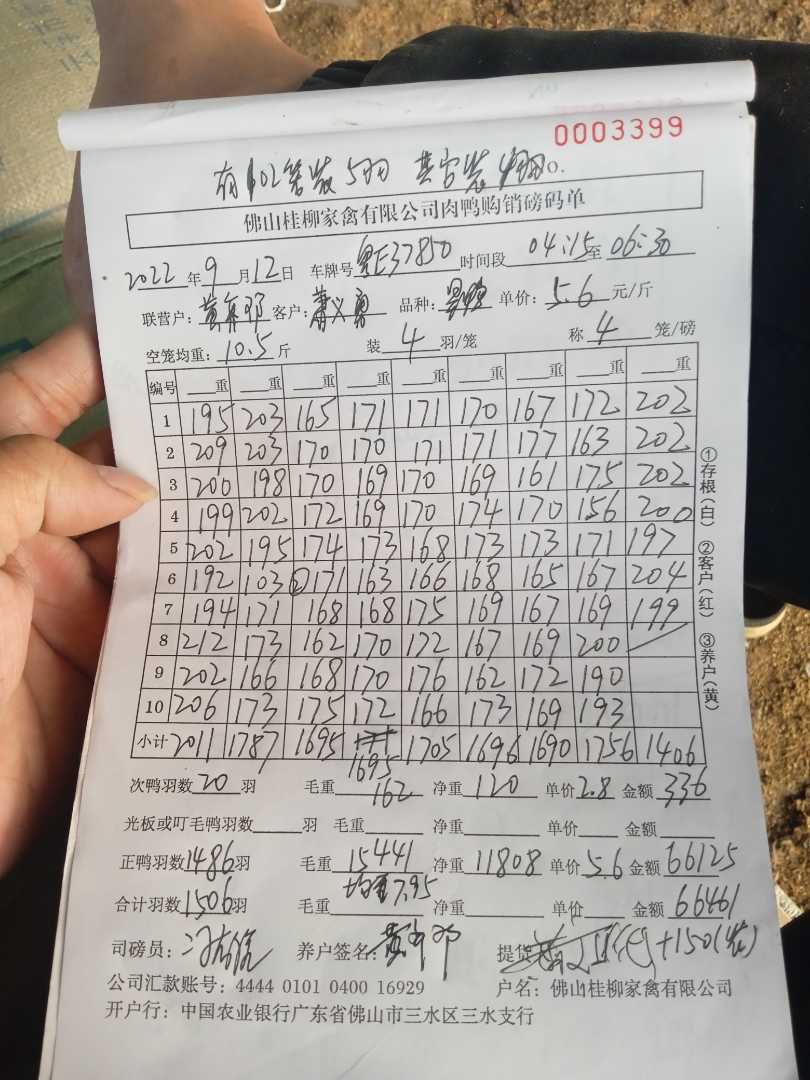 0003399
有102笼装5羽 其它装4羽
佛山桂柳家禽有限公司肉鸭购销磅码单
2022年9月12日 车牌号粤E37850时间段04:15至06:30
联营户: 客户: 品种: 单价: 5.6元/斤
空笼均重: 10.5斤 装4羽/笼 称4笼/磅
编号 重 重 重 重 重 重 重 重 重
1 195 203 165 171 171 170 167 172 202
2 209 203 170 170 171 171 177 163 202
3 200 198 170 169 170 169 161 175 202
4 199 202 172 169 170 174 170 156 200
5 202 195 174 173 168 173 173 171 197
6 192 103② 171 163 166 168 165 167 204
7 194 171 168 168 175 169 167 169 199
8 212 173 162 170 172 167 169 200
9 202 166 168 170 176 162 172 190
10 206 173 175 172 166 173 169 193
小计 2011 1787 1695 1695 1705 1696 1690 1756 1406
次鸭羽数20羽 毛重162 净重120 单价2.8 金额336
光板或叮毛鸭羽数 羽 毛重 净重 单价 金额
正鸭羽数1486羽 毛重15441 净重11808 单价5.6 金额66125
合计羽数1506羽 毛重均重7.95 净重 单价 金额66461
司磅员: 养户签名: 提货 +150(装)
公司汇款账号: 4444 0101 0400 16929 户名: 佛山桂柳家禽有限公司
开户行: 中国农业银行广东省佛山市三水区三水支行
①存根(白) ②客户(红) ③养户(黄)